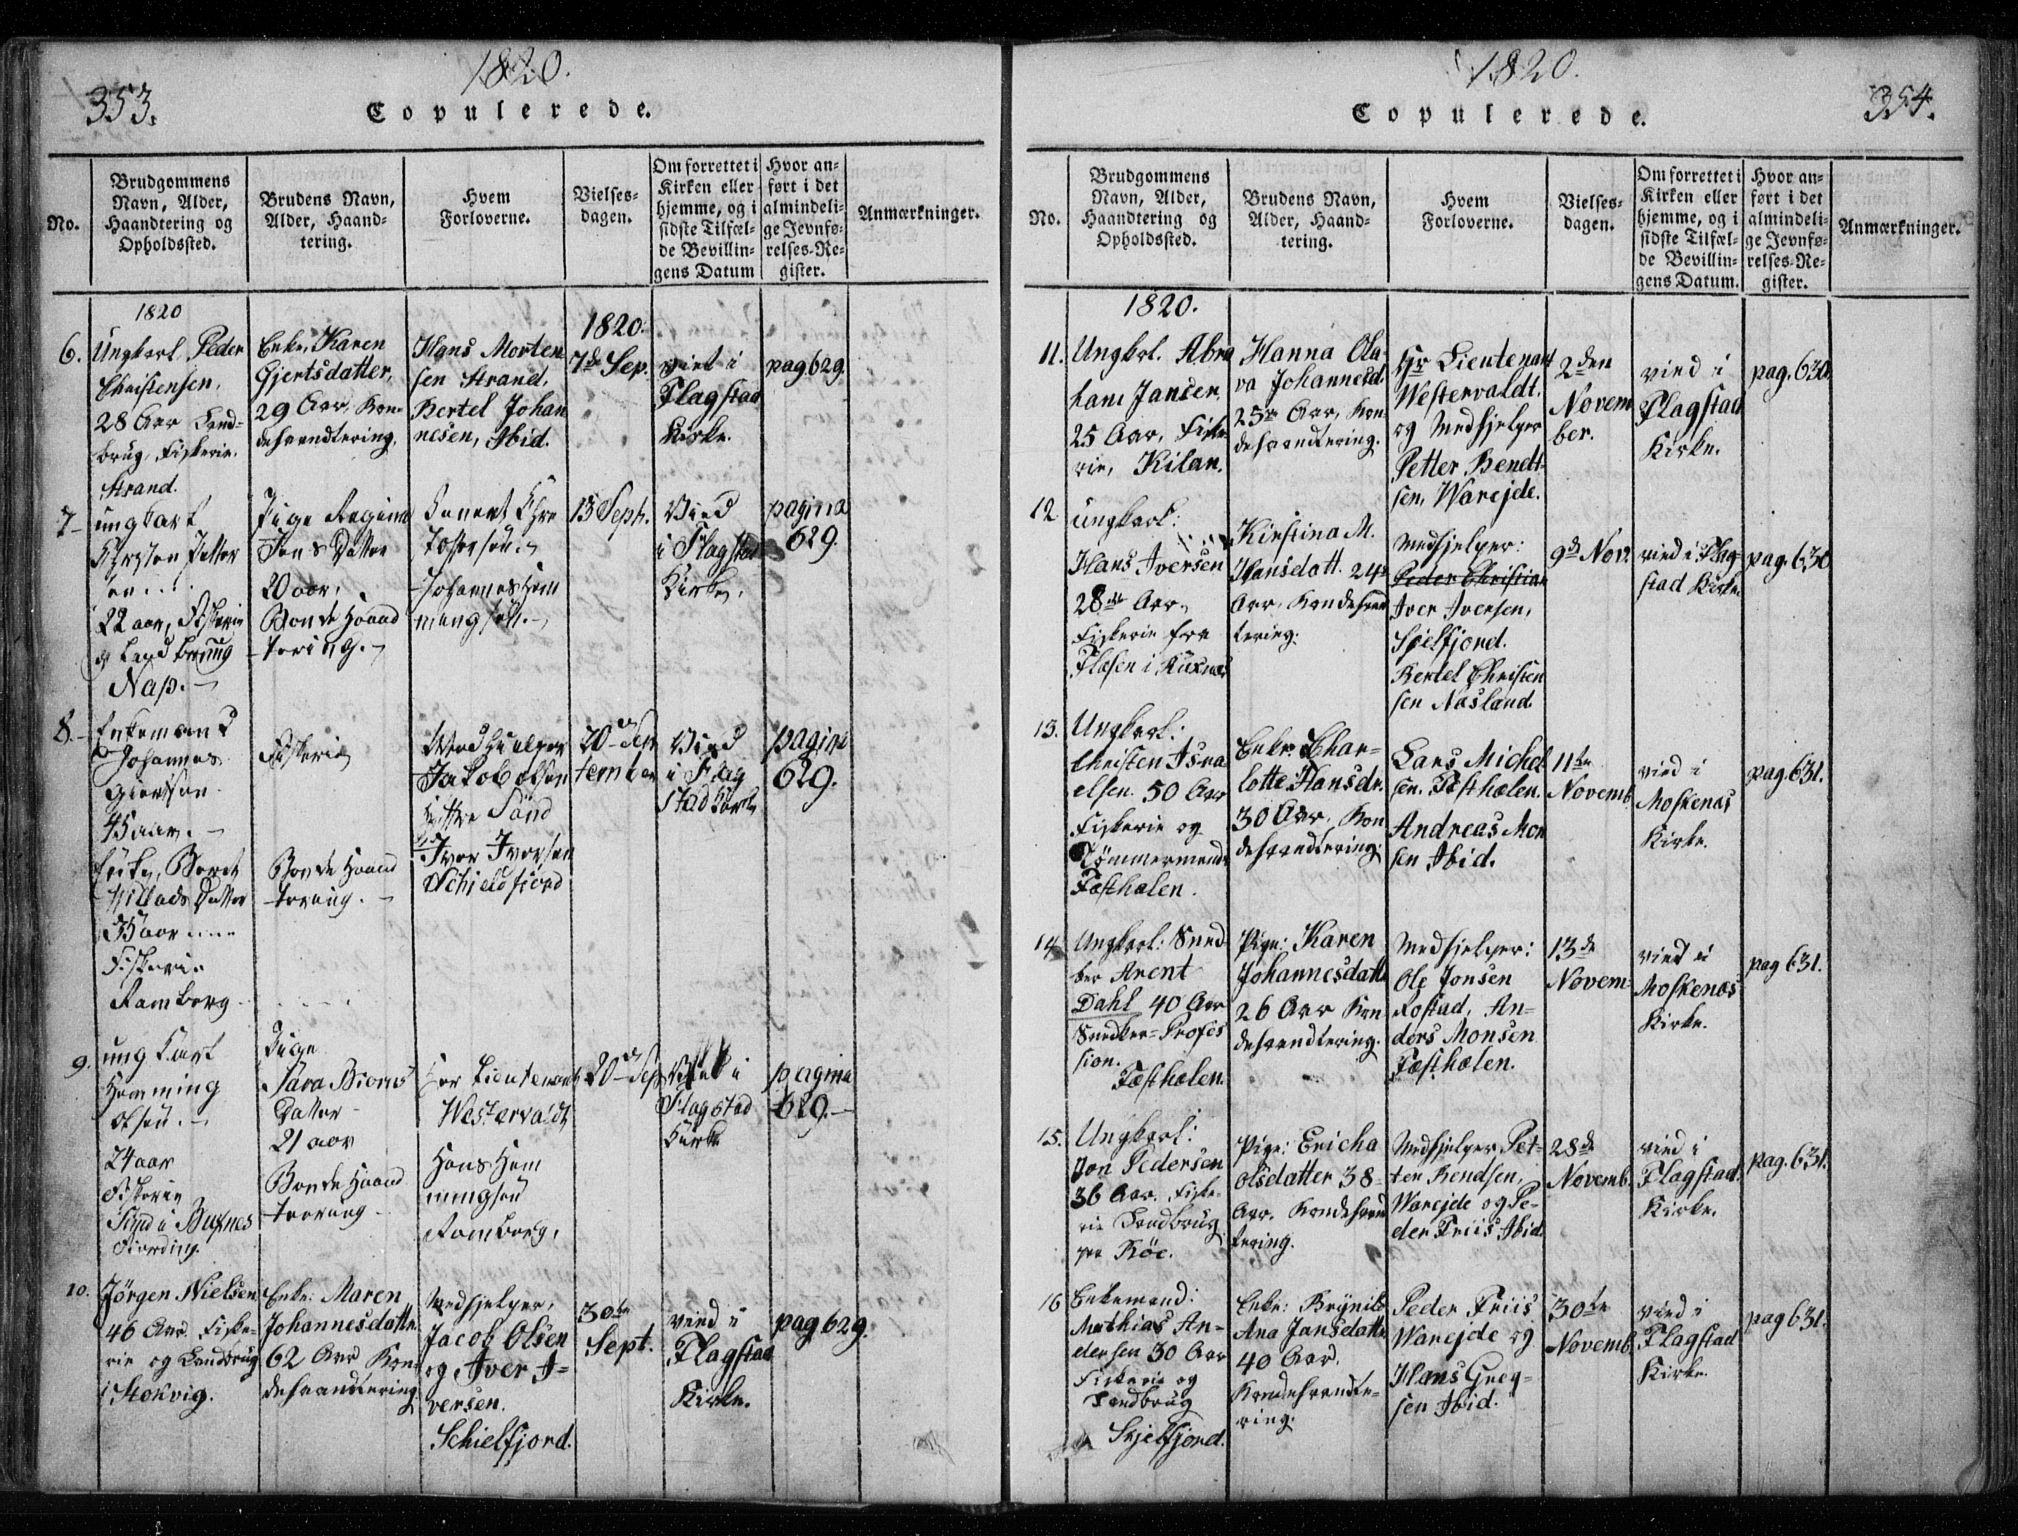 353.
1820.
Copulerede.
No.
Brudgommens
Navn, Alder,
Haandtering og
Opholdssted.
Brudens Navn,
Alder, Haand-
tering.
Hvem
Forloverne.
Vielses-
dagen.
Om forrettet i
Kirken eller
hjemme, og i
sidste Tilfæl-
de Bevillin-
gens Datum
Hvor an-
ført i det
almindeli-
ge Jevnfø-
relses-Re-
gister.
Anmærkninger.
1820
6.
Ungkarl. Peder
Christensen,
28 Aar Land-
brug, Fiskerie.
Strand.
Enke, Karen
Gjertsdatter,
29 Aar, Kon-
dehaandtering.
Hans Morten
sen Strand,
Bertel Johan
nesen, Ibid.
1820.
7de Sep.
viet i
Flagstad
Kirke.
pag 629.
7-
ungkarl
Petter
22 aar, Fiskerie
og Land brug
Nap.
Pige Regina
Jens Datter
20 aar,
Bonde Haand
tering.
Johannes Hem
mingsen.
13 Sept.
Vied
i Flagstad
Kirke.
pagina
629.
8.-
Enkemand
Johannes
45 aar.
Enke, Beret
Willads Datter
35 aar
Fiskerie
Ramberg
Fiskerie
Bonde Haand
tering.
Medhielper
Jakob Olsen
Sund
Ivor Iversen
Schielfiord
20de Sep
tember
Vied
i Flag
stad Kirke
pagina
629.
9.
ung karl
Hemming
Olsen.
24 aar
Fiskerie
Sund i Buxnes
Fierding.
Pige
Sara Biorns
Datter
21 aar
Bonde Haand
tering
Her Lieutenant
Westervaldt
Hans Hem
mingsen
Ramberg.
20de Sep
Viet i
Flagstad
Kirke
pagina
629.
10.
Jörgen Nielsen
46 Aar. Fiske-
rie og Landbrug
i Stokvig.
Enke: Maren
Johannesdatter
62 Aar Kon-
dehaandtering
Medhjelper,
Jacob Olsen
og Iver I-
versen.
Schielfjord.
30te
Sept.
vied i
Flagstad
Kirke.
pag 629.
354.
1820.
Copulerede.
No.
Brudgommens
Navn, Alder,
Haandtering og
Opholdssted.
Brudens Navn,
Alder, Haand-
tering.
Hvem
Forloverne.
Vielses-
dagen.
Om forrettet i
Kirken eller
hjemme, og i
sidste Tilfæl-
de Bevillin-
gens Datum.
Hvor an-
ført i det
almindeli-
ge Jevnfø-
relses-Re-
gister.
Anmærkninger.
1820.
11.
Ungkrl. Abra
ham Jansen,
25 Aar, Fiske
rie, Kilan.
Hanna Ola-
va Johannesd.
25 Aar, Kon
dehaandtering.
Hr Lieutenant
Westervaldt,
og Medhjelper
Petter Bendt-
sen, Wareide.
2den
Novem
ber.
vied i
Flagstad
Kirke.
pag. 630.
12
ungkarl:
Hans Iversen
28de Aar,
Fiskerie fra
Flæsen i Buxnæs
Kirstina M.
Hansdatt. 24
Aar, Kondehaan
tering.
Medhjelper:
Peder Christian
Iver Iversen,
Sjelfjord.
Bertel Christen
sen Næsland
9de Nov.
vied i Flag-
stad Kirke.
pag. 630
13.
Ungkarl:
Christen Isra
elsen 50 Aar
Fiskerie og
Tömmermand.
Festhælen.
Enke: Char-
lotte Hansdr.
30 Aar. Kon
dehaandtering.
Lars Michel
sen, Festhælen.
Andreas Mon
sen Ibid.
11te
Novemb.
vied i
Moskenæs
Kirke.
pag. 631.
14
Ungkarl: Sned-
ker Arent
Dahl 40 Aar
Snedker-Profes
sion.
Festhælen.
Pige: Karen
Johannesdatt.
26 Aar Kon
dehaandtering.
Medhjelper:
Ole Jonsen
Rostad, An-
ders Monsen
Festhælen.
13de
Novem-
vied i
Moskenæs
Kirke.
pag 631.
15.
Ungkarl:
Jon Pedersen
36 Aar. Fiske-
rie Landbrug
paa Röe.
Pige: Ericha
Olsdatter 38
Aar. Kondehaan
tering.
Medhjelper Pet-
ter Bendsen,
Wareide og Pe-
der Friis Ibid.
28de
Novemb.
vied i
Flagstad
Kirke.
pag. 631.
16
Enkemand:
Mathias An-
dersen 30 Aar
Fiskerie og
Landbrug
Skjelfjord.
Enke: Brynild
Ana Jansdatter
40 Aar.
Kondehaandte-
ring.
Peder Friis
Wareide og
Hans Greg-
sen Ibid.
30te
Novemb.
vied i
Flagstad
Kirke.
pag 631.